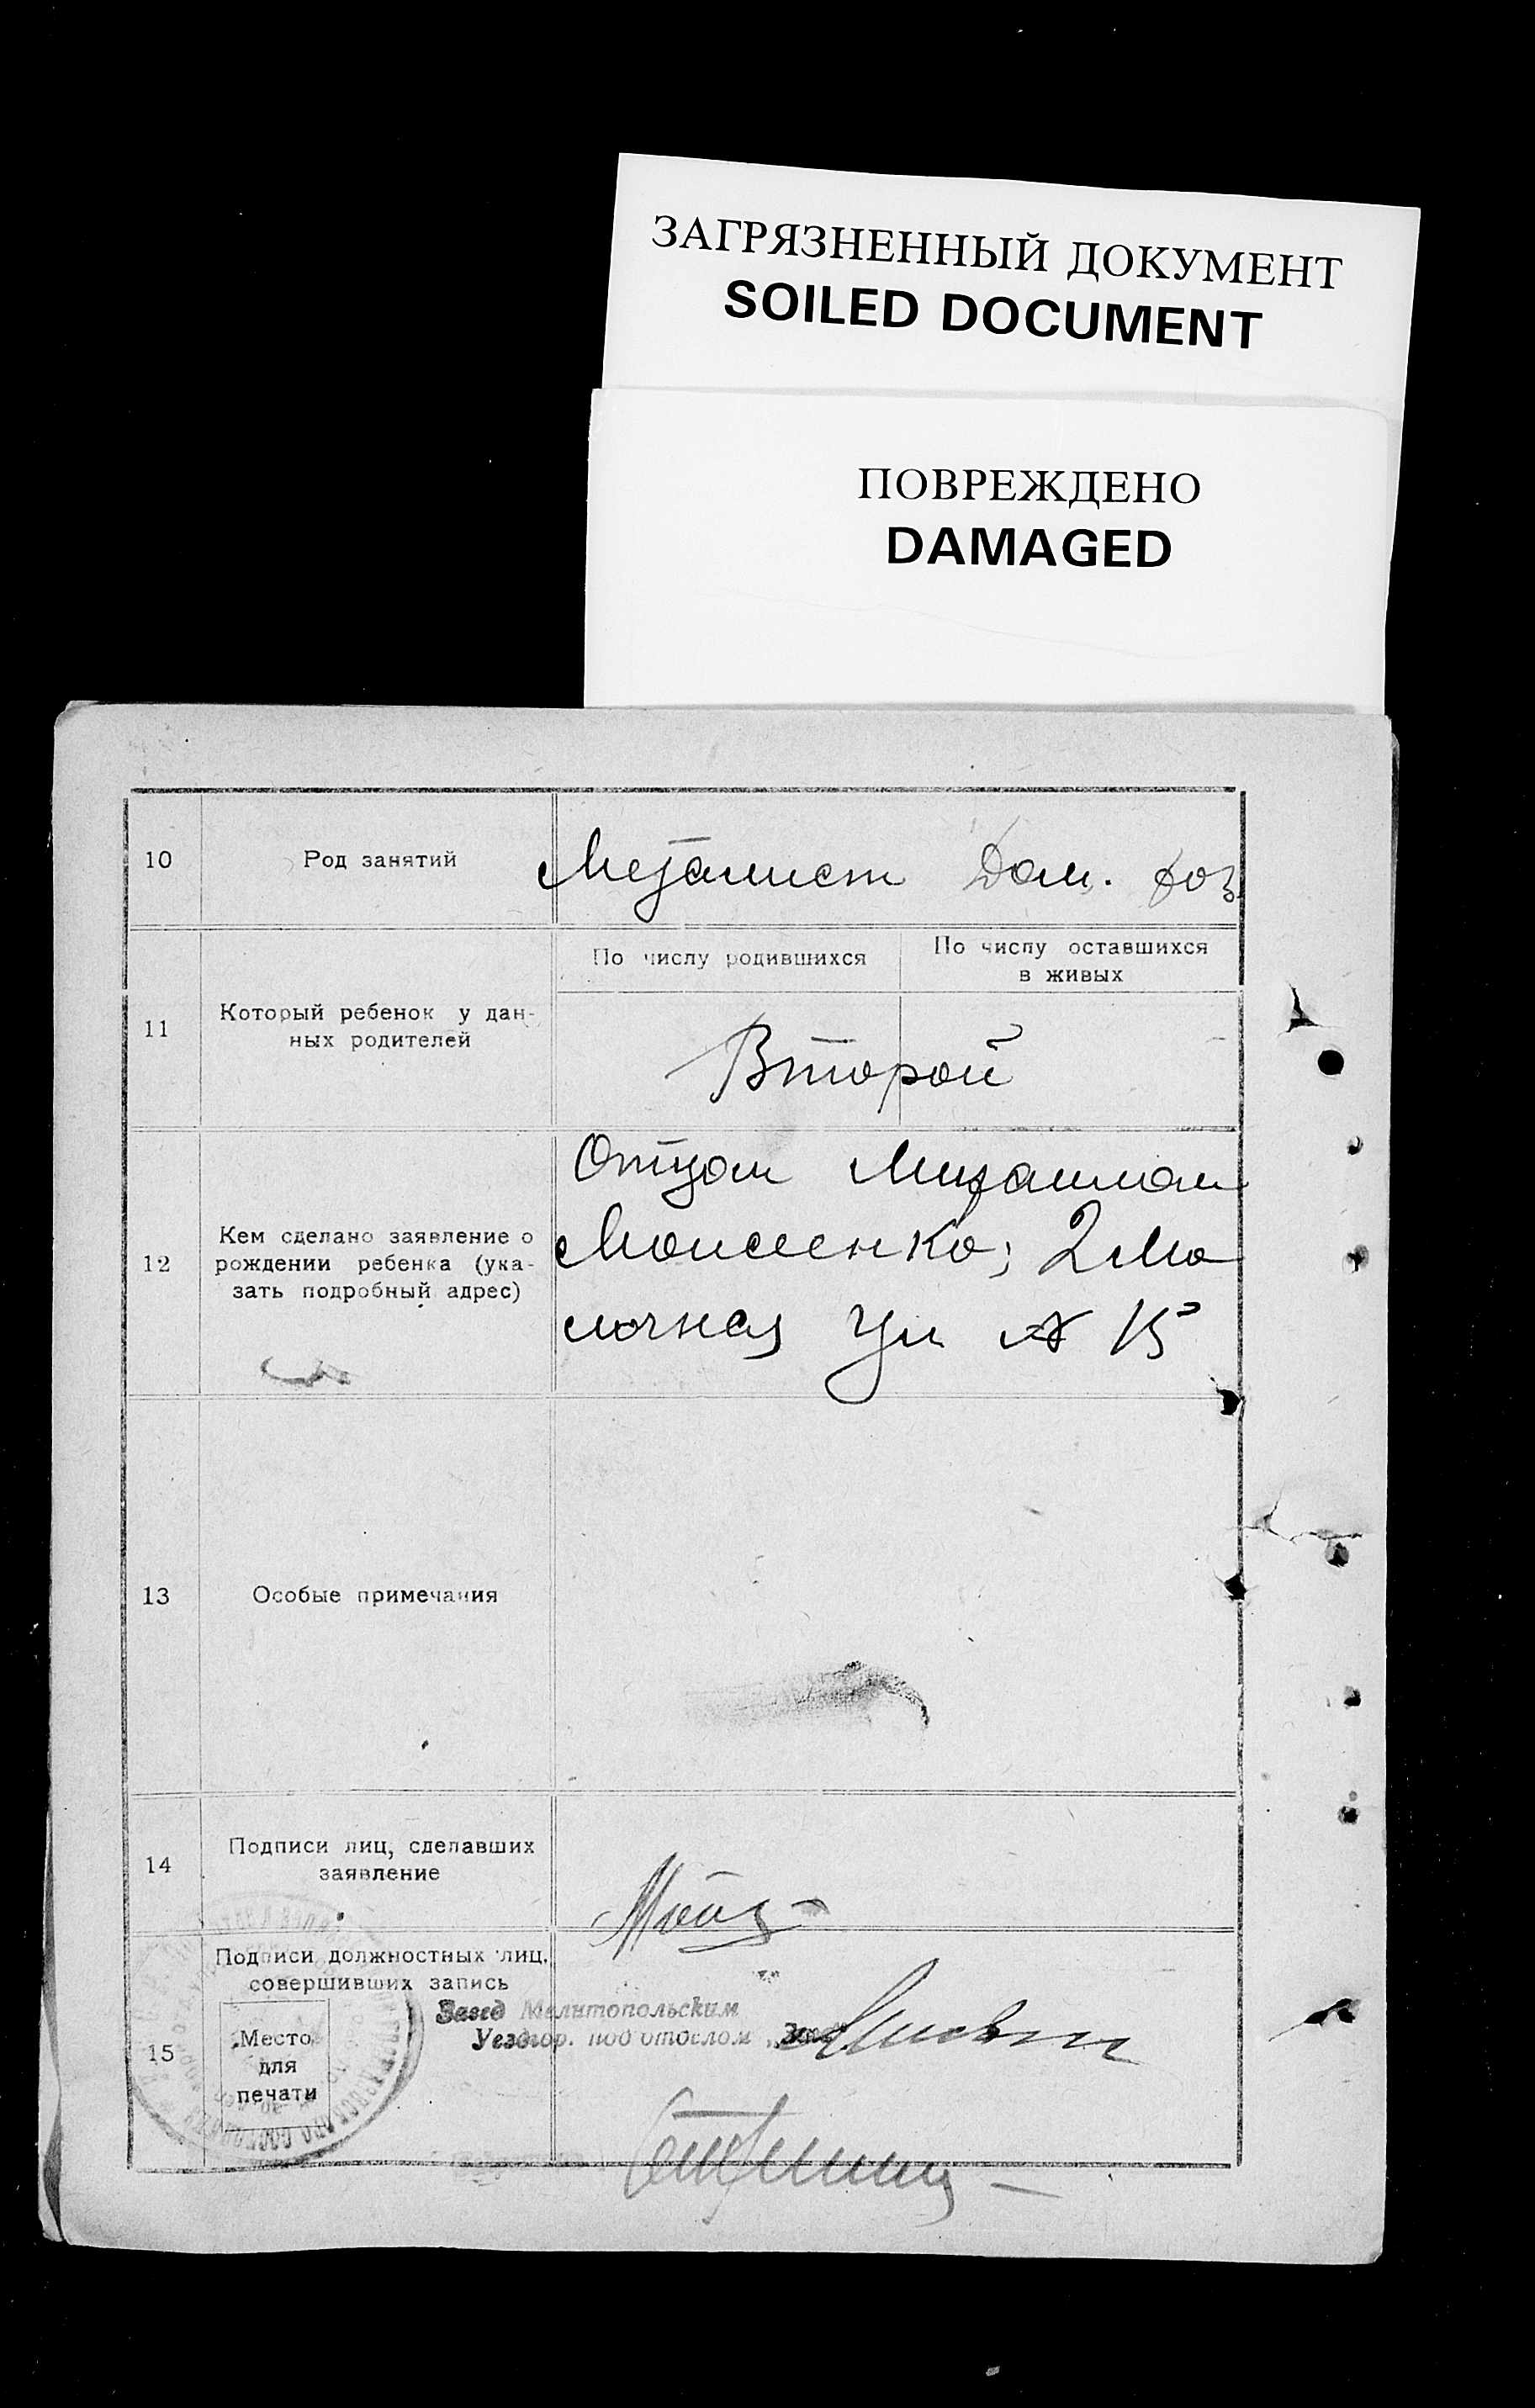 ЗАГРЯЗНЕННЫЙ ДОКУМЕНТ
SOILED DOCUMENT
ПОВРЕЖДЕНО
DAMAGED
10
Род занятий
Металист Дом. хоз
11
Который ребенок у дан-
ных родителей
По числу родившихся
По числу оставшихся
в живых
Второй
12
Кем сделано заявление о
рождении ребенка (ука-
зать подробный адрес)
Отцом Михаилом
Моисеенко; 2 Мо
лочная ул № 15
13
Особые примечания
14
Подписи лиц, сделавших
заявление
15
Подписи должностных лиц,
совершивших запись
Место
для
печати
Завед Мелитопольским